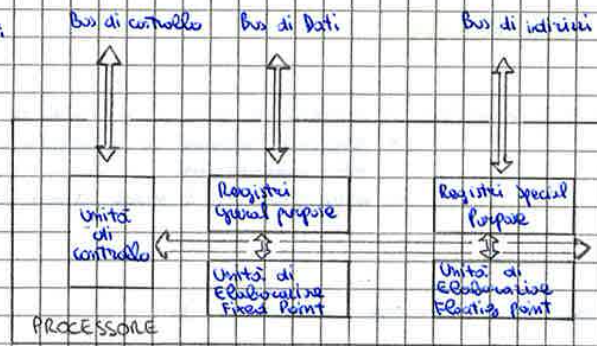 Bus di controllo Bus di Dati Bus di indirizzi
Unità
di
controllo
Registri
General purpose
Registri Special
Purpose
Unità di
Elaborazione
Fixed Point
Unità di
Elaborazione
Floating Point
PROCESSORE